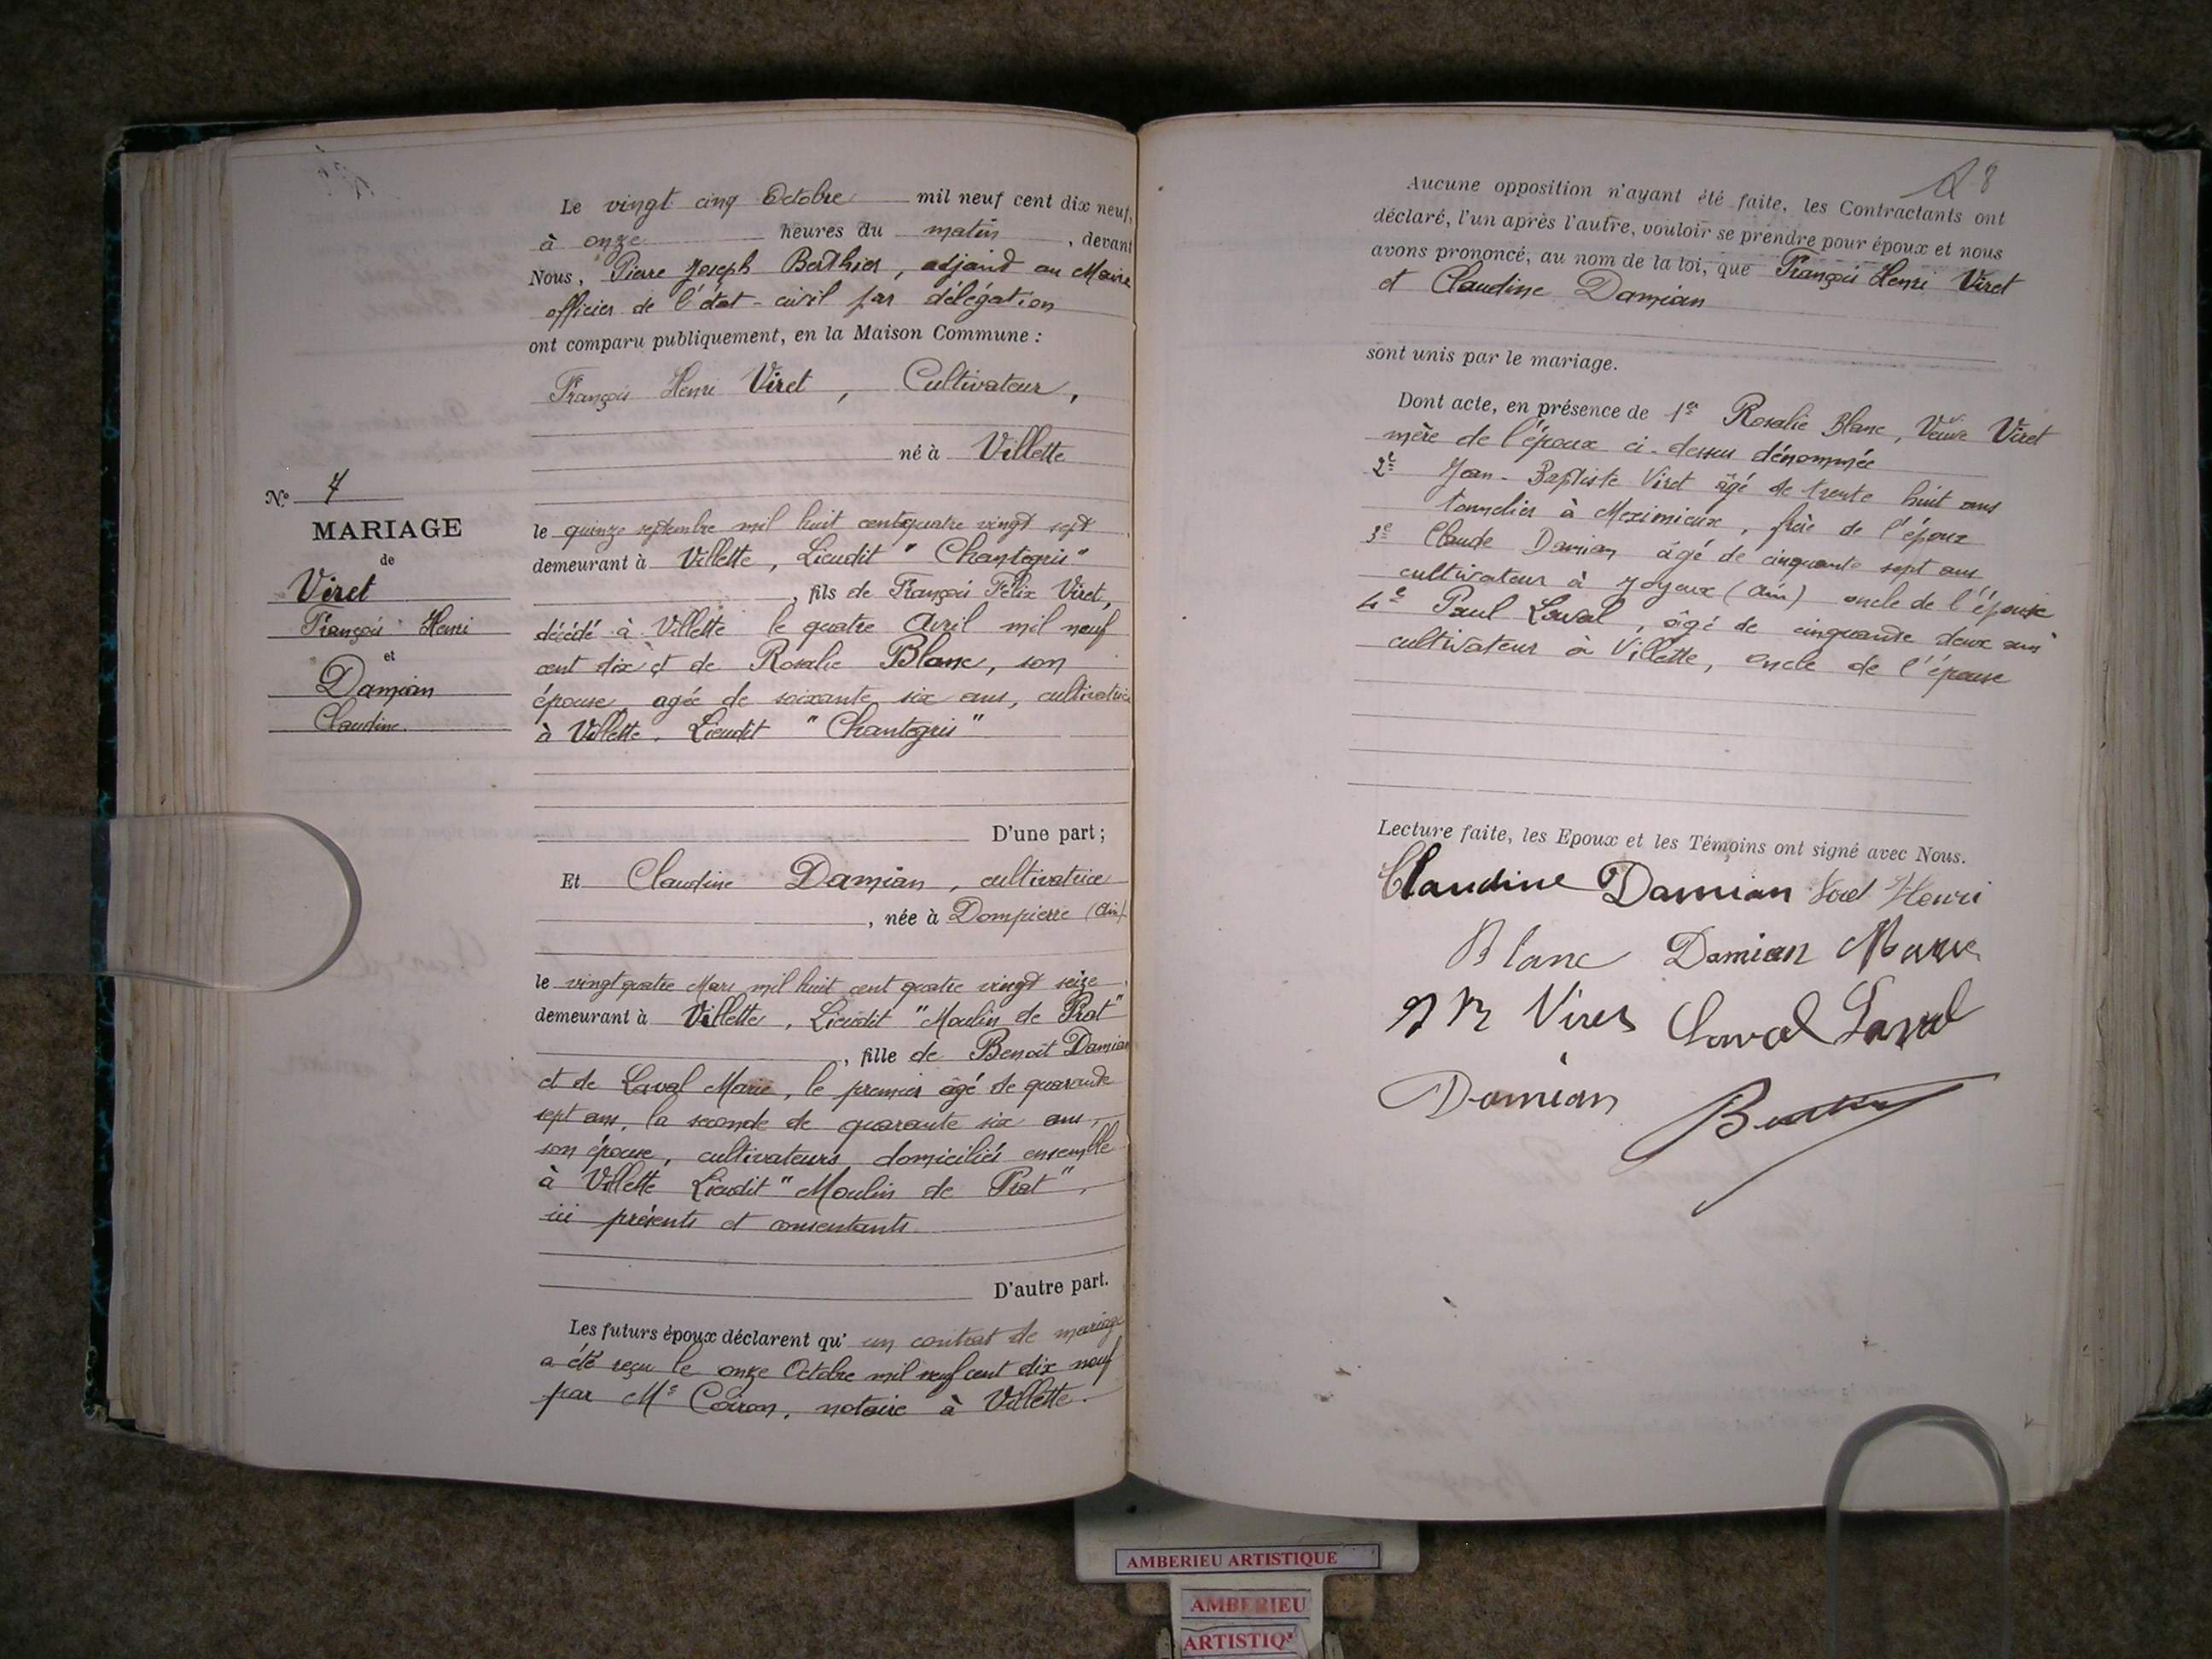 Le vingt cinq Octobre mil neuf cent dix neuf,
à onze heures du matin, devant
Nous, Pierre Joseph Berthier, adjoint au Maire
officier de l'état-civil par délégation
ont comparu publiquement, en la Maison Commune :
François Henri Viret, Cultivateur,
né à Villette
le quinze septembre mil huit cent quatre vingt sept
demeurant à Villette, Lieudit "Chantegris"
, fils de François Félix Viret,
décédé à Villette le quatre Avril mil neuf
cent dix et de Rosalie Blanc, son
épouse, agée de soixante six ans, cultivatrice
à Villette. Lieudit "Chantegris"
D'une part ;
Et Claudine Damian, cultivatrice
, née à Dompierre (Ain)
le vingt quatre Mars mil huit cent quatre vingt seize
demeurant à Villette, Lieudit "Moulin de Prat"
, fille de Benoît Damian
et de Laval Marie, le premier âgé de quarante
sept ans, la seconde de quarante six ans,
son épouse, cultivateurs domiciliés ensemble
à Villette Lieudit "Moulin de Prat",
ici présents et consentants.
D'autre part.
Les futurs époux déclarent qu'un contrat de mariage
a été reçu le onze Octobre mil neuf cent dix neuf
par Me Coiron, notaire à Villette.
No 7
MARIAGE
de
Viret
François Henri
et
Damian
Claudine.
8
Aucune opposition n'ayant été faite, les Contractants ont
déclaré, l'un après l'autre, vouloir se prendre pour époux et nous
avons prononcé, au nom de la loi, que François Henri Viret
et Claudine Damian
sont unis par le mariage.
Dont acte, en présence de 1er Rosalie Blanc, Veuve Viret
mère de l'époux ci-dessus dénommée
2e Jean-Baptiste Viret âgé de trente huit ans
tonnelier à Meximieux, frère de l'époux
3e Claude Damian âgé de cinquante sept ans
cultivateur à Joyeux (Ain) oncle de l'épouse
4e Paul Laval, âgé de cinquante deux ans
cultivateur à Villette, oncle de l'épouse
Lecture faite, les Epoux et les Témoins ont signé avec Nous.
Claudine Damian Viret Henri
Blanc Damian Marie
Viret Laval Laval
Damian Berthier
AMBERIEU ARTISTIQUE
AMBERIEU
ARTISTIQ